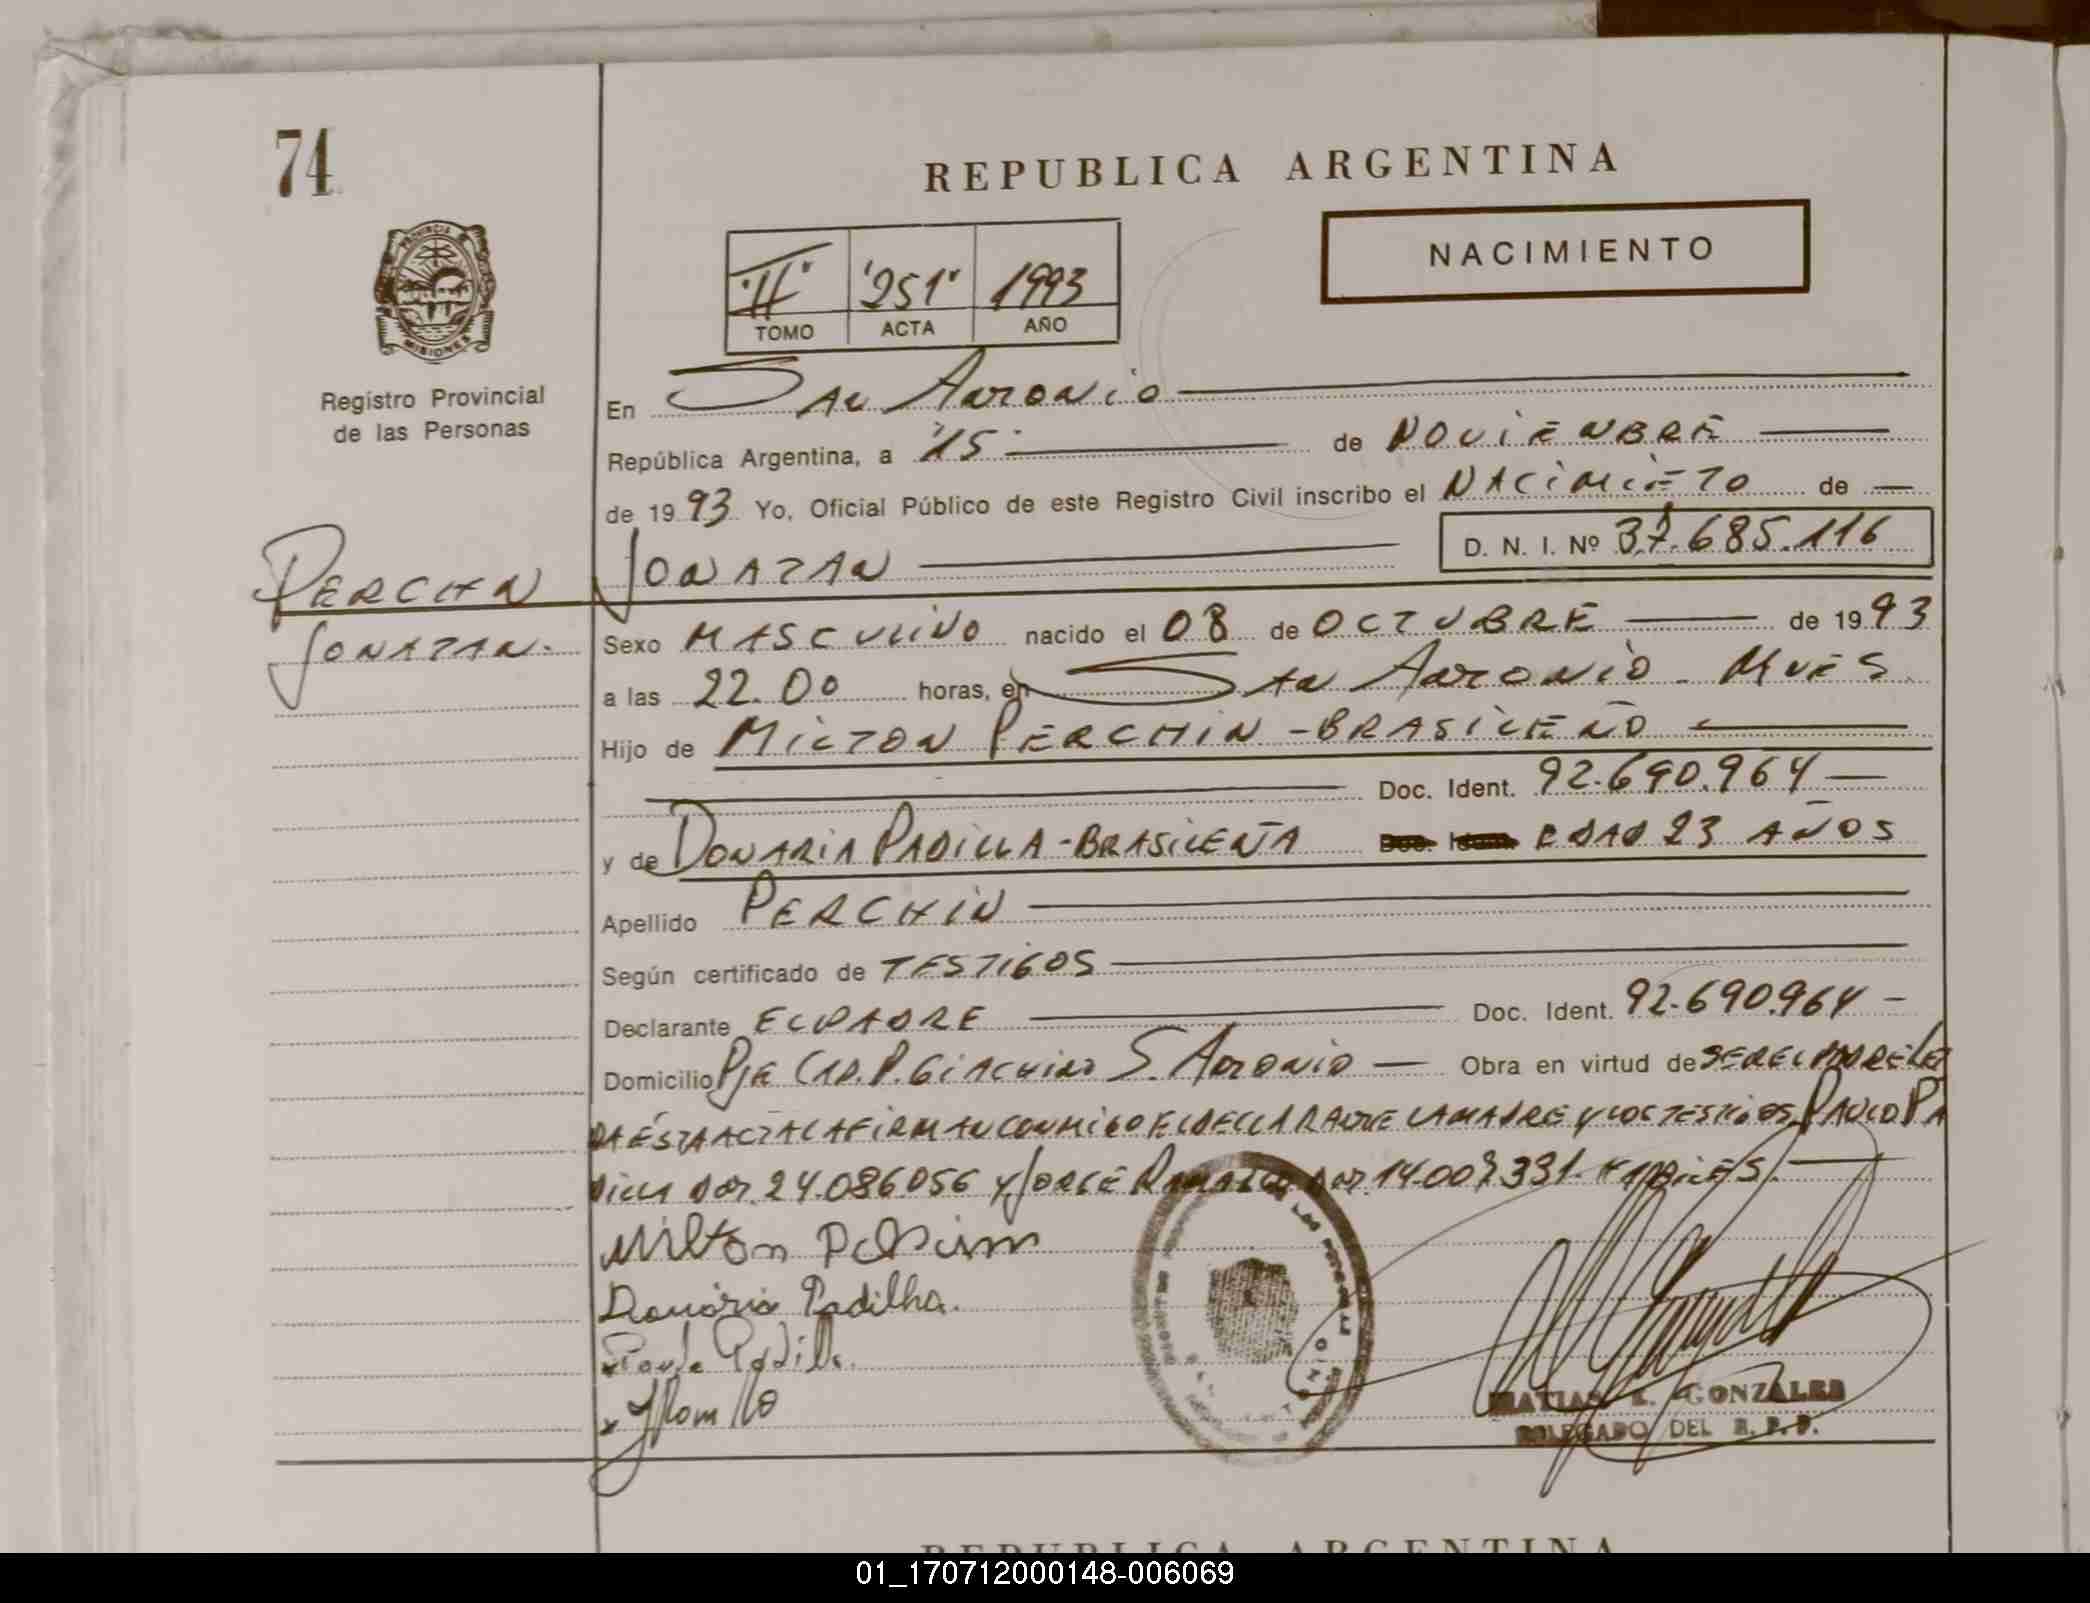 74
REPUBLICA ARGENTINA
NACIMIENTO
"II" "251" 1993
TOMO ACTA AÑO
PROVINCIA DE MISIONES
Registro Provincial
de las Personas
En San Antonio
República Argentina, a "15" de NOVIENBRE
de 1993 Yo, Oficial Público de este Registro Civil inscribo el NACIMIETO de
JONATAN D. N. I. Nº 37.685.116
PERCHIN
JONATAN.
Sexo MASCULINO nacido el 08 de OCTUBRE de 1993
a las 22.00 horas, en San Antonio - Mnes
Hijo de MILTON PERCHIN - BRASILEÑO
Doc. Ident. 92.690.964
y de DONARIA PADILLA - BRASILEÑA EDAD 23 AÑOS
Apellido PERCHIN
Según certificado de TESTIGOS
Declarante EL PADRE Doc. Ident. 92.690.964
Domicilio Pje Cap. P. Giachino S. Antonio Obra en virtud de SER EL PADRE LEI
DA ÉSTA ACTA LA FIRMAN CONMIGO EL DECLARANTE LA MADRE Y LOS TESTIGOS PAULO PA
DILLA 24.086.056 Y JORGE 14.009.331 HABILES.
Milton Perchim
Donária Padilha.
Padilha
MATIAS E. GONZALEZ
DELEGADO DEL R. P. P.
REPUBLICA ARGENTINA
01_170712000148-006069